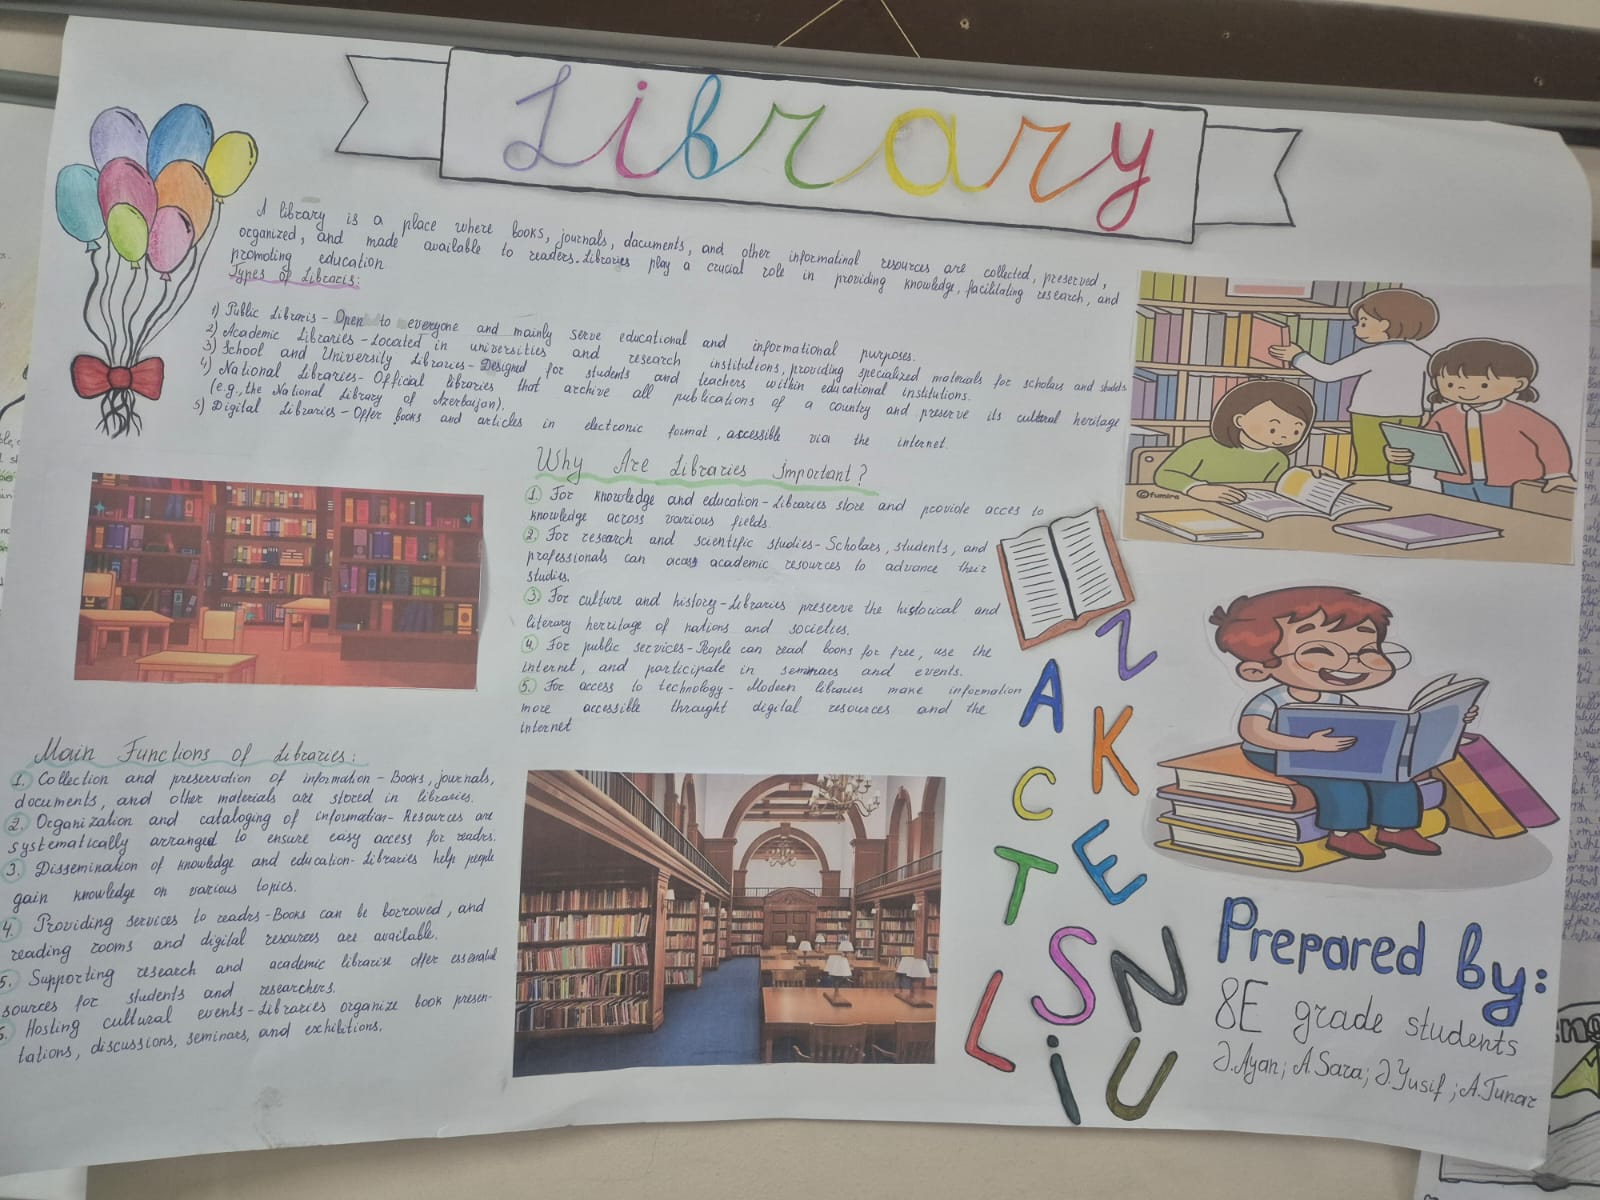 Library
A library is a place where books, journals, documents, and other informatinal resources are collected, preserved,
organized, and made available to readers. Libraries play a crucial role in providing knowledge, facilitating research, and
promoting education
Types of Libraris:
1) Public Libraris - Open to everyone and mainly serve educational and informational purposes.
2) Academic Libraries - Located in universities and research institutions, providing specialized materials for scholars and students
3) School and University Libraries - Designed for students and teachers within educational institutions.
4) National Libraries - Official libraries that archive all publications of a country and preserve its cultural heritage
(e.g., the National Library of Azerbaijan).
5) Digital Libraries - Offer books and articles in electronic format, accessible via the internet.
Why Are Libraries Important?
1. For knowledge and education - Libraries store and provide acces to
knowledge across various fields.
2. For research and scientific studies - Scholars, students, and
professionals can access academic resources to advance their
studies.
3. For culture and history - Libraries preserve the historical and
literary heritage of nations and societies.
4. For public services - People can read books for free, use the
internet, and participate in seminars and events.
5. For access to technology - Modern libraries make information
more accessible throught digital resources and the
internet
Main Functions of Libraries:
1. Collection and preservation of information - Books, journals,
documents, and other materials are stored in libraries.
2. Organization and cataloging of information - Resources are
systematically arranged to ensure easy access for readrs.
3. Dissemination of knowledge and education - Libraries help people
gain knowledge on various topics.
4. Providing services to readrs - Books can be borrowed, and
reading rooms and digital resources are available.
5. Supporting research and academic librarise offer essential
sources for students and researchers.
6. Hosting cultural events - Libraries organize book presen-
tations, discussions, seminars, and exhibitions.
©fumira
Z
A
K
C
E
T
S
N
L
i
U
Prepared by:
8E grade students
Ə.Ayan; A.Sara; Ə.Yusif; A.Tunar